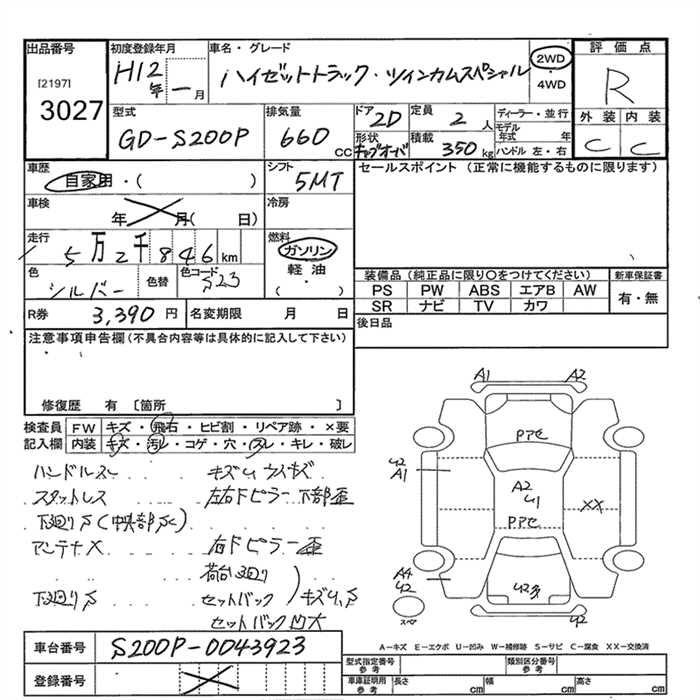 出品番号
[2197]
3027
初度登録年月
H12年 一月
車名・グレード
ハイゼットトラック・ツインカムスペシャル
2WD
・
4WD
評価点
R
型式
GD-S200P
排気量
660 CC
ドア
2D
形状
キャブオーバ
定員
2 人
積載
350 kg
ディーラー・並行
モデル年式 年
ハンドル 左・右
外装 内装
C C
車歴
自家用・( )
シフト
5MT
車検
年 月( 日)
冷房
走行
5万2千846km
燃料
ガソリン
・
軽油
( )
色
シルバー
色替
色コード
S23
R券 3,390円
名変期限 月 日
セールスポイント(正常に機能するものに限ります)
装備品(純正品に限り〇をつけてください)
PS PW ABS エアB AW
SR ナビ TV カワ
新車保証書
有・無
後日品
注意事項申告欄(不具合内容等は具体的に記入して下さい)
修復歴 有 [箇所 ]
検査員記入欄
FW キズ・飛石・ヒビ割・リペア跡・×要
内装 キズ・汚レ・コゲ・穴・スレ・キレ・破レ
ハンドルスレ キズU ウスキズ
スタットレス 左右Fピラー下部歪
下廻りS(中央部SC)
アンテナX 右Fピラー歪
荷台廻り
下廻りS セットバック キズU、S
セットバック凹大
A1 A2
PアC
U2
A1
A2
U1
XX
PアC
A4
U2
スペア
A-キズ E-エクボ U-凹み W-補修跡 S-サビ C-腐食 XX-交換済
車台番号 S200P-0043923
登録番号
型式指定番号 参考
類別区分番号 参考
車庫証明用 参考 長さ cm 幅 cm 高さ cm